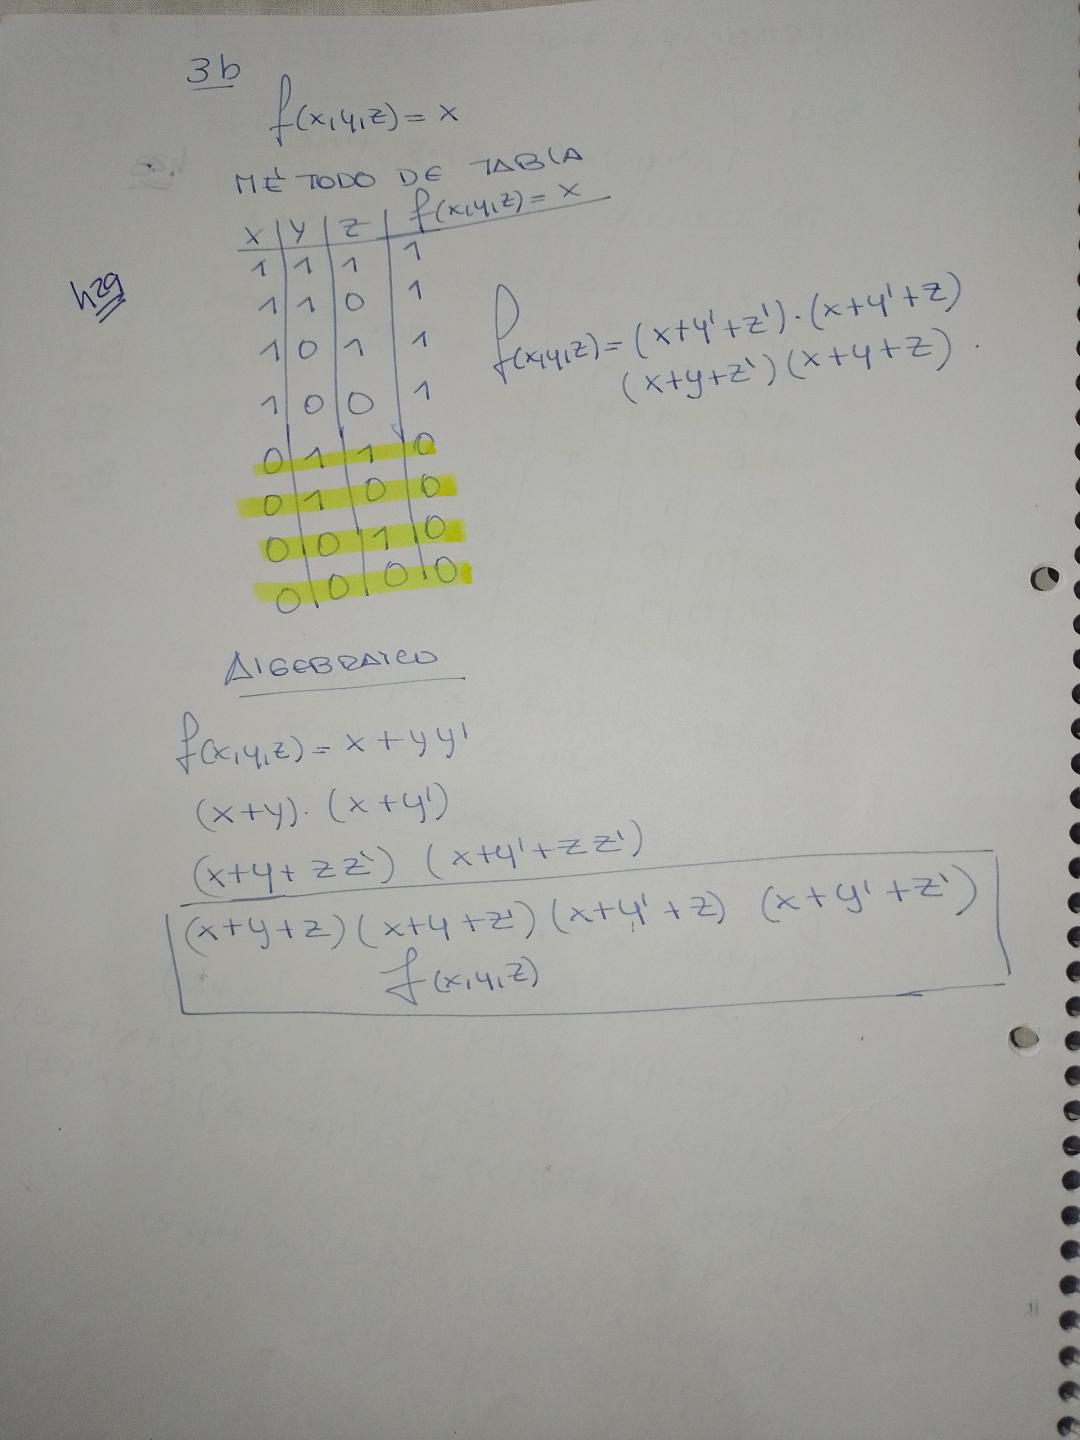 3b
f(x,y,z) = x
MÉTODO DE TABLA
x | y | z | f(x,y,z) = x
1 | 1 | 1 | 1
1 | 1 | 0 | 1
1 | 0 | 1 | 1
1 | 0 | 0 | 1
0 | 1 | 1 | 0
0 | 1 | 0 | 0
0 | 0 | 1 | 0
0 | 0 | 0 | 0
h29
f(x,y,z) = (x+y'+z')·(x+y'+z)
(x+y+z')(x+y+z).
ALGEBRAICO
f(x,y,z) = x + yy'
(x+y)·(x+y')
(x+y+zz') (x+y'+zz')
(x+y+z)(x+y+z')(x+y'+z) (x+y'+z')
f(x,y,z)